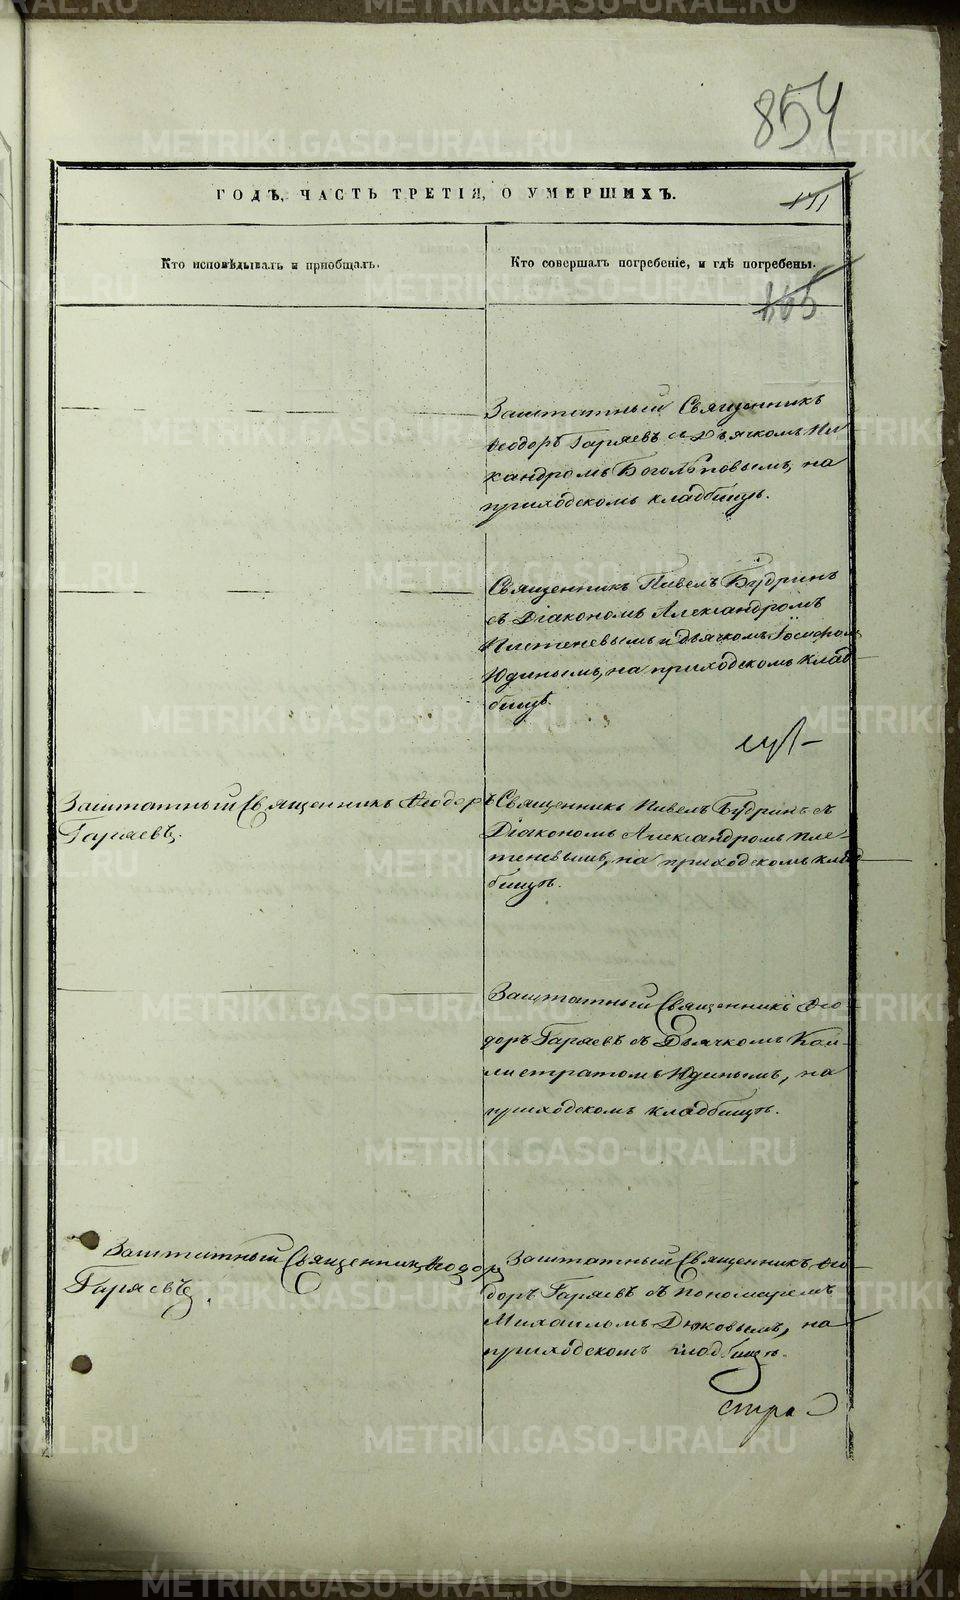 854
ГОДЪ, ЧАСТЬ ТРЕТІЯ, О УМЕРШИХЪ.
171
Кто исповѣдывалъ и пріобщалъ.
Кто совершалъ погребеніе, и гдѣ погребены.
Заштатный Священникъ
Ѳеодоръ Гаряевъ съ Дьячкомъ Ни
кандромъ Боголѣповымъ, на
приходскомъ кладбищѣ.
Священникъ Павелъ Будринъ
съ Діакономъ Александромъ
Плетеневымъ и Дьячкомъ Іосифомъ
Юдинымъ, на приходскомъ клад
бищѣ.
Заштатный Священникъ Ѳеодоръ
Гаряевъ.
Священникъ Павелъ Будринъ съ
Діакономъ Александромъ Пле-
теневымъ, на приходскомъ клад
бищѣ.
Заштатный Священникъ Ѳео-
доръ Гаряевъ съ Дьячкомъ Кал-
листратомъ Юдинымъ, на
приходскомъ кладбищѣ.
Заштатный Священникъ Ѳеодоръ
Гаряевъ.
Заштатный Священникъ Ѳео-
доръ Гаряевъ съ Пономаремъ
Михаиломъ Дюковымъ, на
приходскомъ кладбищѣ.
стра
METRIKI.GASO-URAL.RU